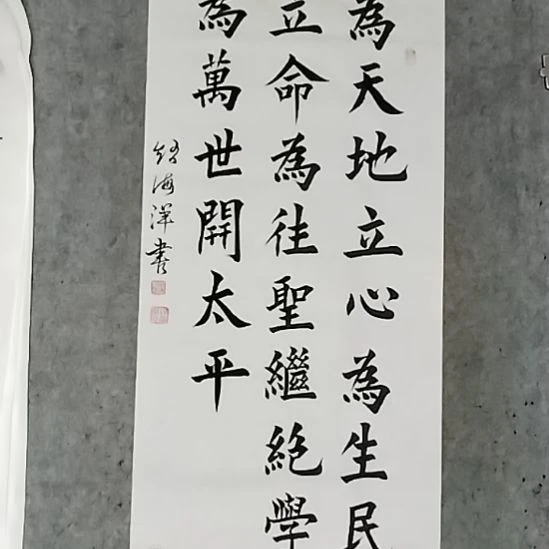 為天地立心為生民
立命為往聖繼絕學
為萬世開太平
海洋書